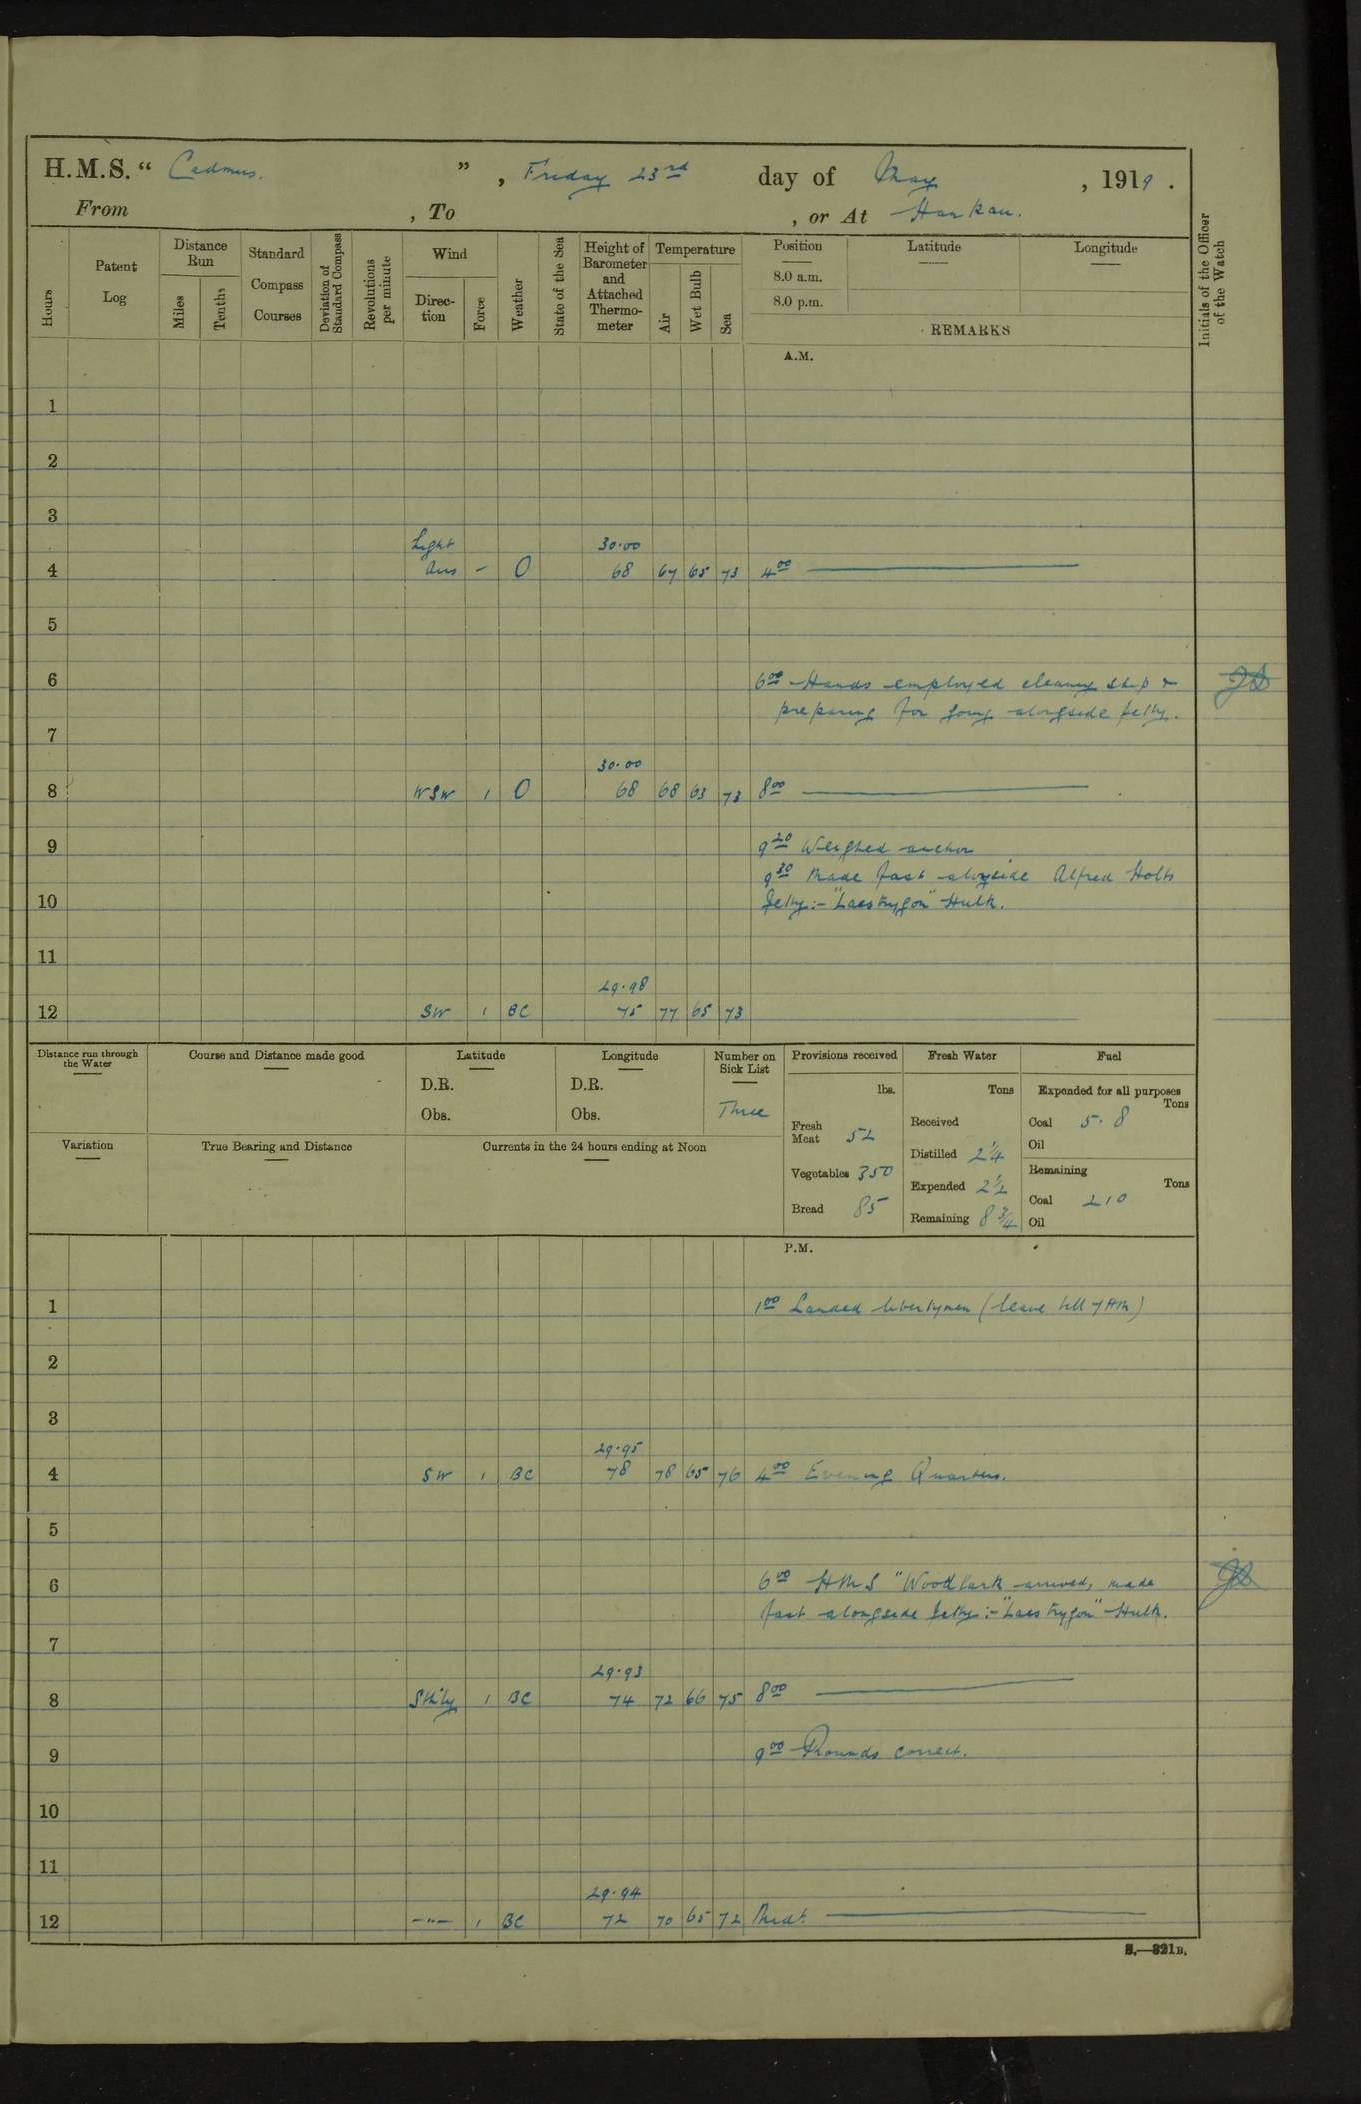 H.M.S. “ Cadmus. ” , Friday 23rd day of May , 1919 .
From , To , or At Hankau.
Hours
Patent Log
Distance Run
Miles
Tenths
Standard Compass Courses
Deviation of Standard Compass
Revolutions per minute
Wind
Direc-tion
Force
Weather
State of the Sea
Height of Barometer and Attached Thermo-meter
Temperature
Air
Wet Bulb
Sea
Position
8.0 a.m.
8.0 p.m.
Latitude
Longitude
REMARKS
Initials of the Officer of the Watch
A.M.
1
2
3
Light 30.00
4 Airs - O 68 67 65 73 4 00
5
6 6 00 Hands employed cleaning ship &
preparing for going alongside jetty.
7
30.00
8 WSW 1 O 68 68 63 73 8 00
9 9 20 Weighed anchor
9 30 Made fast alongside Alfred Holts
10 jetty:- "Laestrygon" Hulk.
11
29.98
12 SW 1 BC 75 77 65 73
Distance run through the Water
Course and Distance made good
Latitude
D.R.
Obs.
Longitude
D.R.
Obs.
Number on Sick List
Three
Variation
True Bearing and Distance
Currents in the 24 hours ending at Noon
Provisions received
lbs.
Fresh Meat 52
Vegetables 350
Bread 85
Fresh Water
Tons
Received
Distilled 2 1/4
Expended 2 1/2
Remaining 8 3/4
Fuel
Expended for all purposes
Tons
Coal 5.8
Oil
Remaining
Tons
Coal 210
Oil
P.M.
1 1 00 Landed libertymen (leave till 7 AM)
2
3
29.95
4 SW 1 BC 78 78 65 76 4 00 Evening Quarters.
5
6 6 00 HMS "Woodlark arrived, made
fast alongside jetty:- "Laestrygon" Hulk.
7
29.93
8 Sthly 1 BC 74 72 66 75 8 00
9 9 00 Rounds correct.
10
11
29.94
12 -"- 1 BC 72 70 65 72 Midt.
S.—321B.